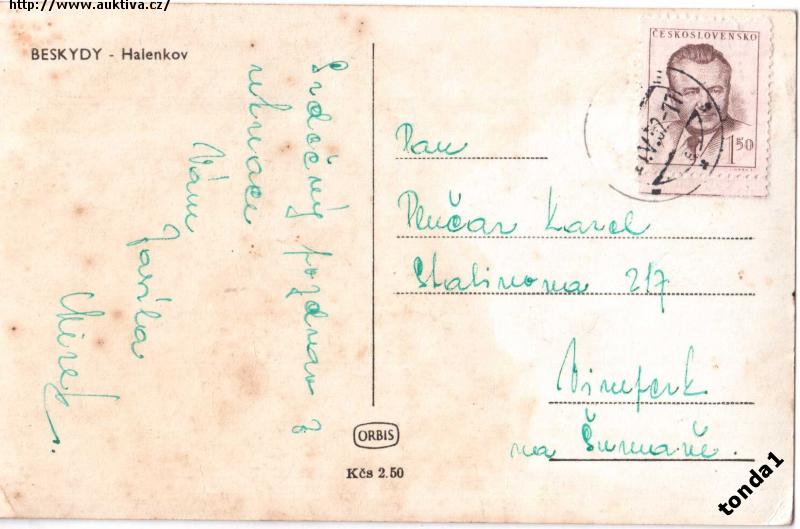 http://www.auktiva.cz/
BESKYDY - Halenkov
Srdečný pozdrav z
rekreace
Vám
zasílá
Mirek
ČESKOSLOVENSKO
1.50
Pan
Plučar Karel
Stalinova 217
Vimperk
na Šumavě.
ORBIS
Kčs 2.50
tonda1